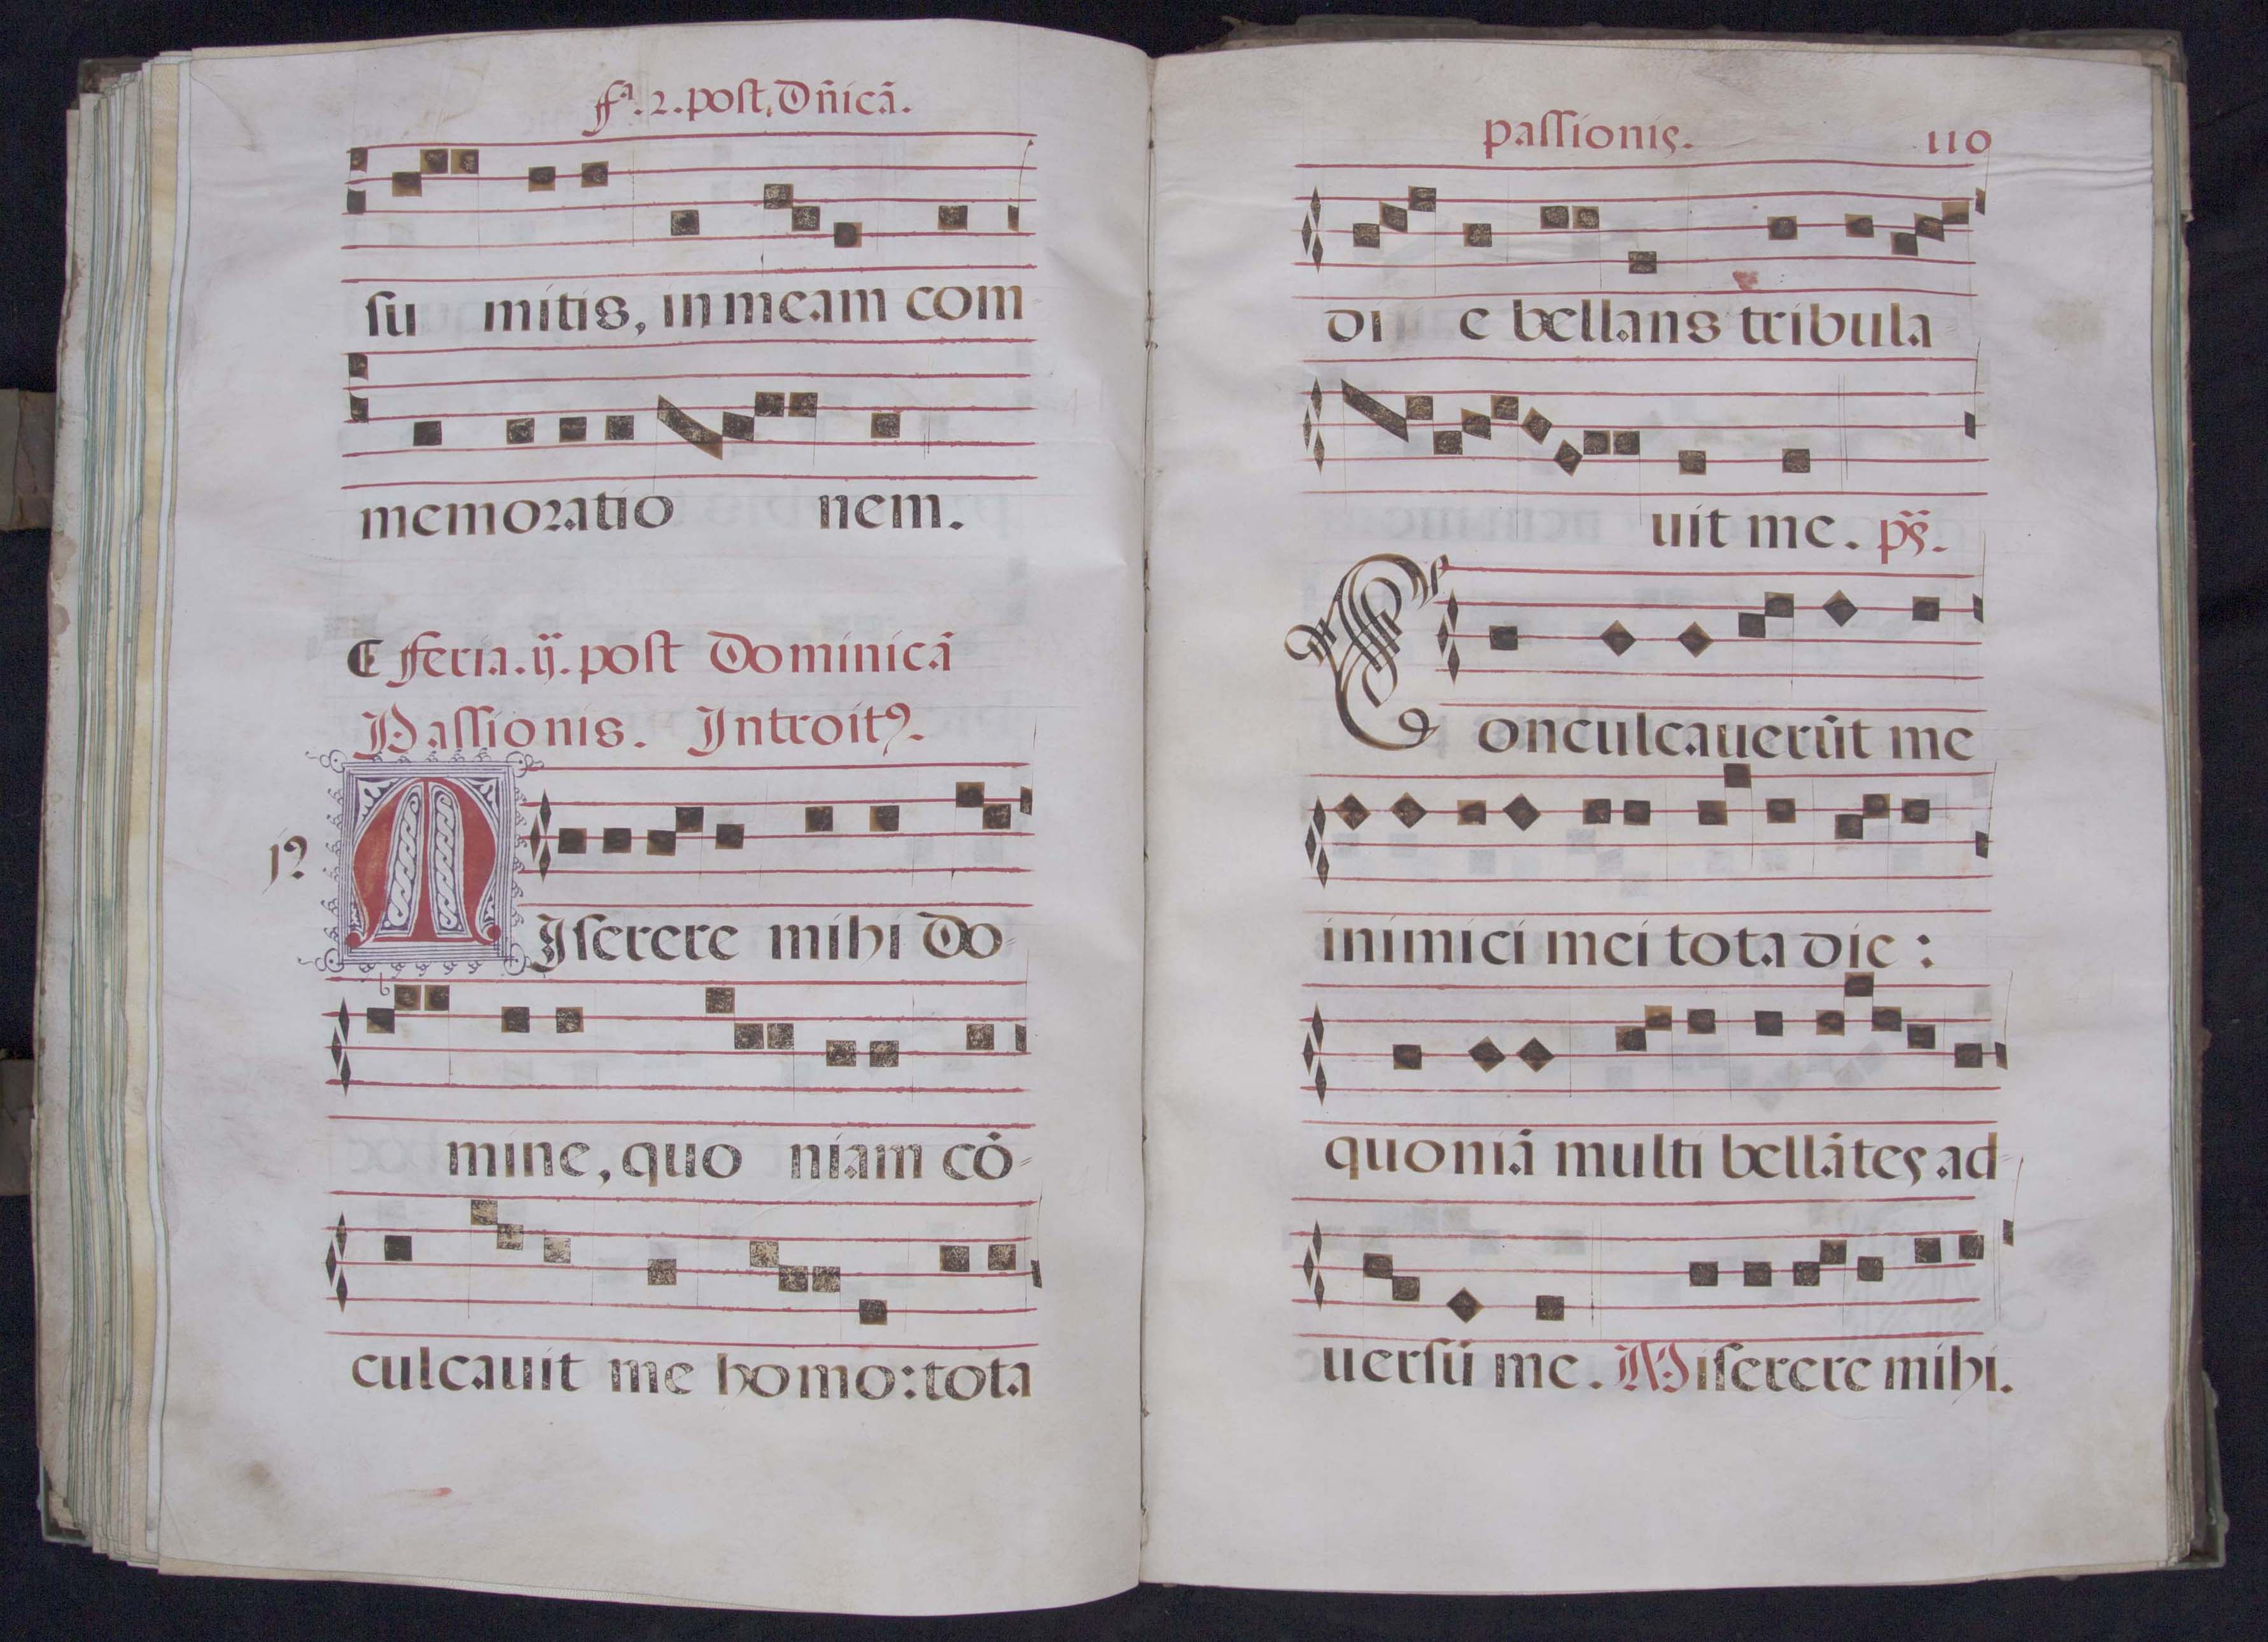 fª. 2. post, Dñicã.
su mitis, in meam com-
memoratio nem.
feria. ij. post Dominicã
Passionis. Introit9.
MIserere mihi Do-
mine, quo niam cõ-
culcauit me homo: tota
passionis. 110
di e bellans tribula
uit me. ps̃.
Conculcauerũt me
inimici mei tota die:
quoniã multi bellãtes ad-
uersũ me. Miserere mihi.